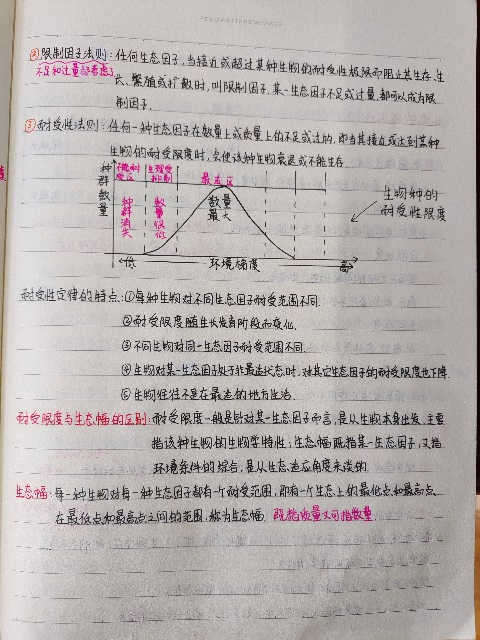 ②限制因子法则：任何生态因子，当接近或超过某种生物的耐受性极限而阻止其生存、生
不足和过量都考虑
长、繁殖或扩散时，叫限制因子。某一生态因子不足或过量，都可以成为限
制因子。
③耐受性法则：任何一种生态因子在数量上或质量上的不足或过多，即当其接近或达到某种
生物的耐受限度时，会使该种生物衰退或不能生存。
种群数量
不能耐受区
生理受抑制
最适区
种群消失
数量很低
数量最大
生物种的
耐受性限度
低
环境梯度
高
耐受性定律的特点：①每种生物对不同生态因子耐受范围不同.
②耐受限度随生长发育阶段而变化.
③不同生物对同一生态因子耐受范围不同.
④生物对某一生态因子处于非最适状态时，对其它生态因子的耐受限度也下降.
⑤生物往往不是在最适的地方生活.
耐受限度与生态幅的区别：耐受限度一般是针对某一生态因子而言，是从生物本身出发，主要
指该种生物的生物学特性；生态幅既指某一生态因子，又指
环境条件的综合，是从生态适应角度来谈的.
生态幅：每一种生物对每一种生态因子都有一个耐受范围，即有一个生态上的最低点和最高点.
在最低点和最高点之间的范围，称为生态幅. 既指质量又可指数量.